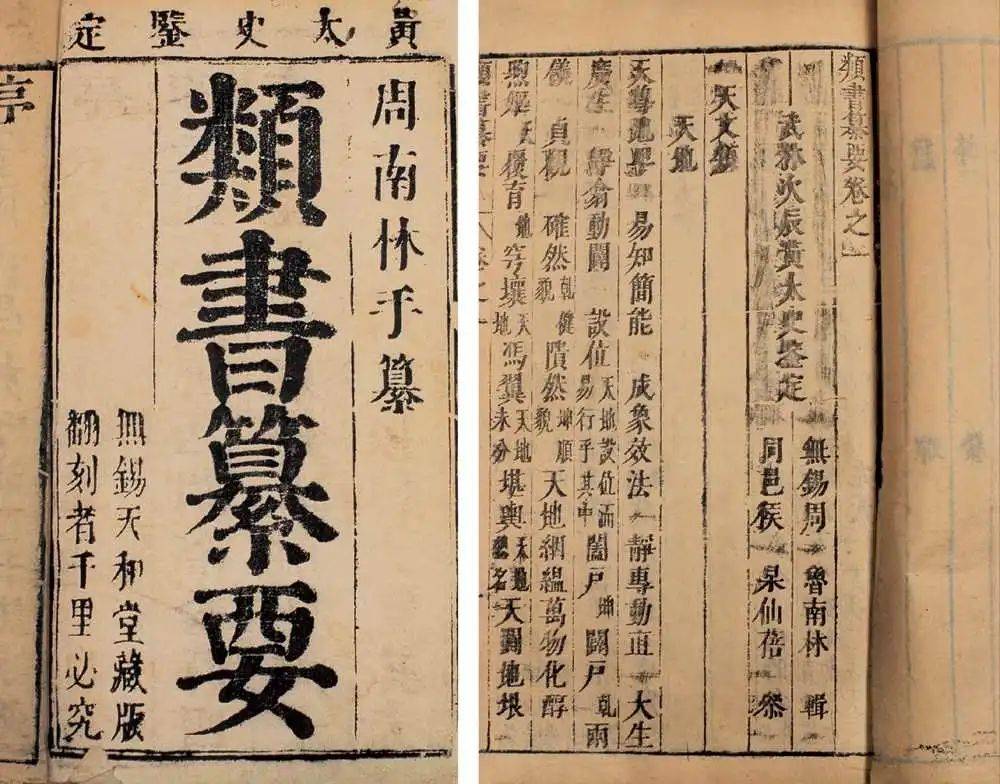 黃太史鑒定
周南林手纂
類書纂要
無錫天和堂藏版
翻刻者千里必究
序
類書纂要卷之一
無錫周 魯南林 輯
武林次辰黃太史鑒定
同邑侯 杲仙蓓 叅
天文類
天地
天尊地卑 易知簡能 成象效法 靜專動直 大生
廣生 學翕動闢 設位天地設位而易行乎其中 闔戶坤 闢戶乾 兩
儀 貞觀 確然乾健貌 隤然坤順貌 天地絪縕萬物化醇
煦嫗天 覆育地 穹壤天地 馮翼天地未分 堪輿天地總名 天闢地垠
類書纂要 卷之一